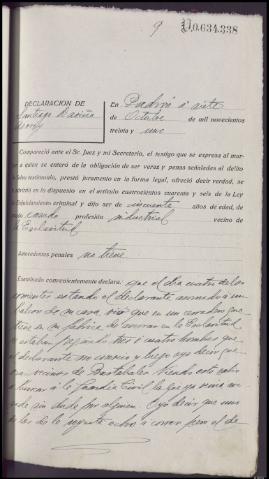 9
0.634.338
DECLARACION DE
Santiago
En Padrón a siete
de Octubre de mil novecientos
treinta y uno
Compareció ante el Sr. Juez y mi Secretario, el testigo que se expresa al mar-
gen a quien se enteró de la obligación de ser veraz y penas señaladas al delito
de falso testimonio, prestó juramento en la forma legal, ofreció decir verdad, se
en lo dispuesto en el artículo cuatrocientos cuarenta y seis de la Ley
de Enjuiciamiento criminal y dijo ser de cincuenta años de edad, de
casado profesión industrial vecino de
Esclavitud
Antecedentes penales no tiene
Examinado convenientemente declara: que el día cuatro de los
corrientes estando el declarante asomado a un
balcon de su casa, vió que en un cercado que
tiene en su fábrica de en la Esclavitud
estaban pegando tres o cuatro hombres que
el declarante no conoció y luego oyó decir que
eran vecinos de Bastabales. Viendo esto salió
a buscar a la Guardia Civil la que ya venía
sin duda por alguien. Oyó decir que uno
de los de la echó a correr pero el de-